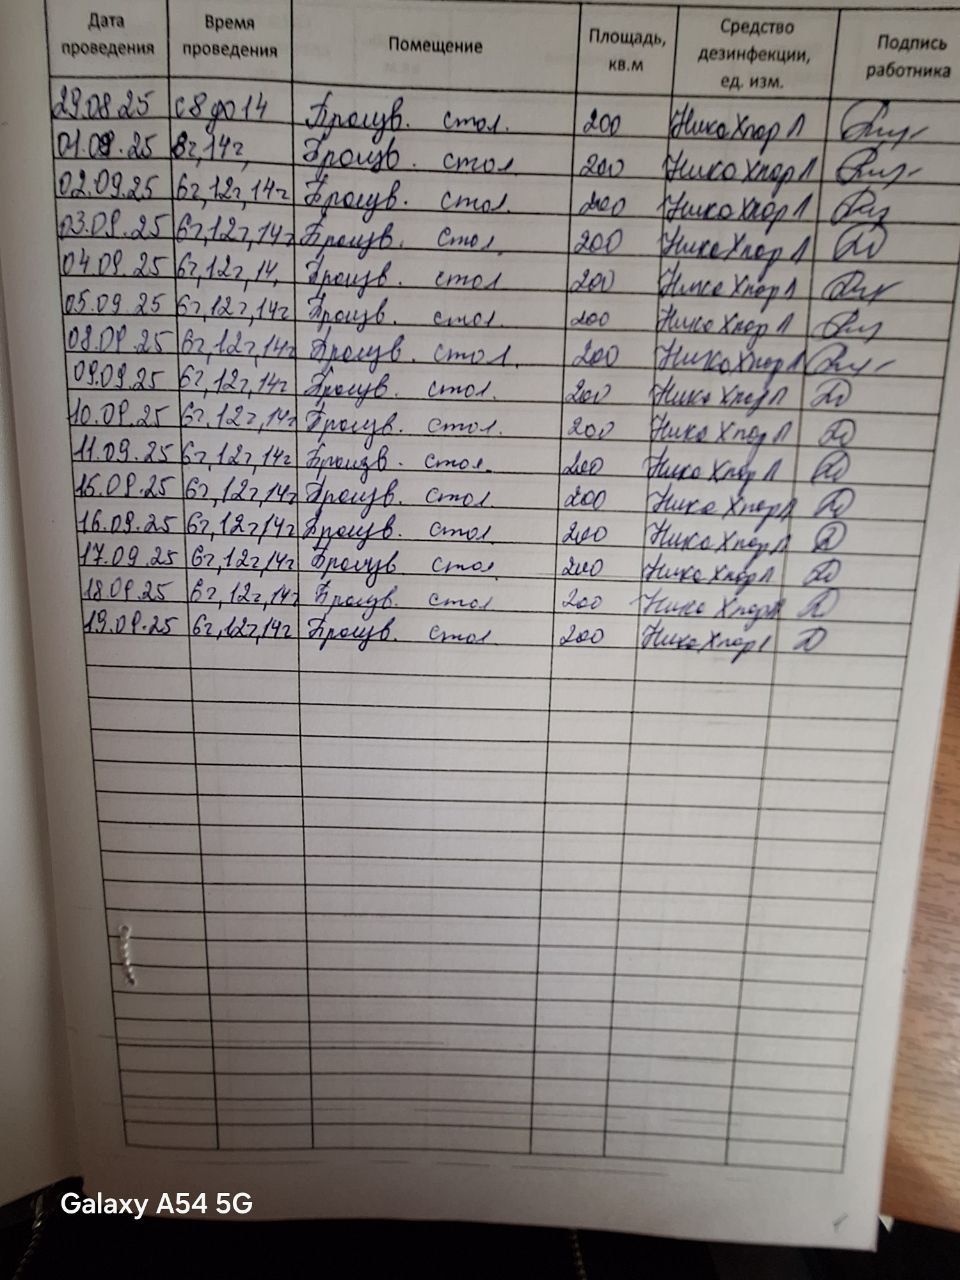 Дата проведения Время проведения Помещение Площадь, кв.м Средство дезинфекции, ед. изм. Подпись работника
29.08.25 с 8 до 14 Произв. стол. 200 НикаХлор Л
01.09.25 8ч,14ч, Произв. стол. 200 НикаХлор Л
02.09.25 6ч,12ч,14ч Произв. стол. 200 НикаХлор Л
03.09.25 6ч,12ч,14ч Произв. стол. 200 НикаХлор Л
04.09.25 6ч,12ч,14. Произв. стол 200 НикаХлор Л
05.09.25 6ч,12ч,14ч Произв. стол. 200 НикаХлор Л
08.09.25 6ч,12ч,14ч Произв. стол. 200 НикаХлор Л
09.09.25 6ч,12ч,14ч Произв. стол. 200 НикаХлор Л
10.09.25 6ч,12ч,14ч Произв. стол. 200 НикаХлор Л
11.09.25 6ч,12ч,14ч Произв. стол. 200 НикаХлор Л
15.09.25 6ч,12ч,14ч Произв. стол. 200 НикаХлор Л
16.09.25 6ч,12ч,14ч Произв. стол 200 НикаХлор Л
17.09.25 6ч,12ч,14ч Произв стол. 200 НикаХлор Л
18.09.25 6ч,12ч,14ч Произв. стол 200 НикаХлор Л
19.09.25 6ч,12ч,14ч Произв. стол 200 НикаХлор Л
Galaxy A54 5G